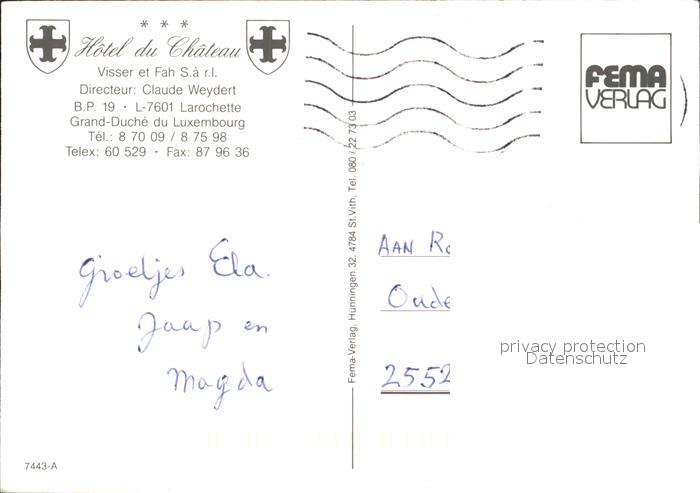 * * *
Hôtel du Château
Visser et Fah S.à r.l.
Directeur: Claude Weydert
B.P. 19 · L-7601 Larochette
Grand-Duché du Luxembourg
Tél.: 8 70 09 / 8 75 98
Telex: 60 529 · Fax: 87 96 36
Groetjes Ela.
Jaap en
Magda
7443-A
Fema-Verlag, Hünningen 32, 4784 St.Vith, Tel. 080 / 22 73 03
FEMA
VERLAG
AAN Ro
Oude
2552
privacy protection
Datenschutz